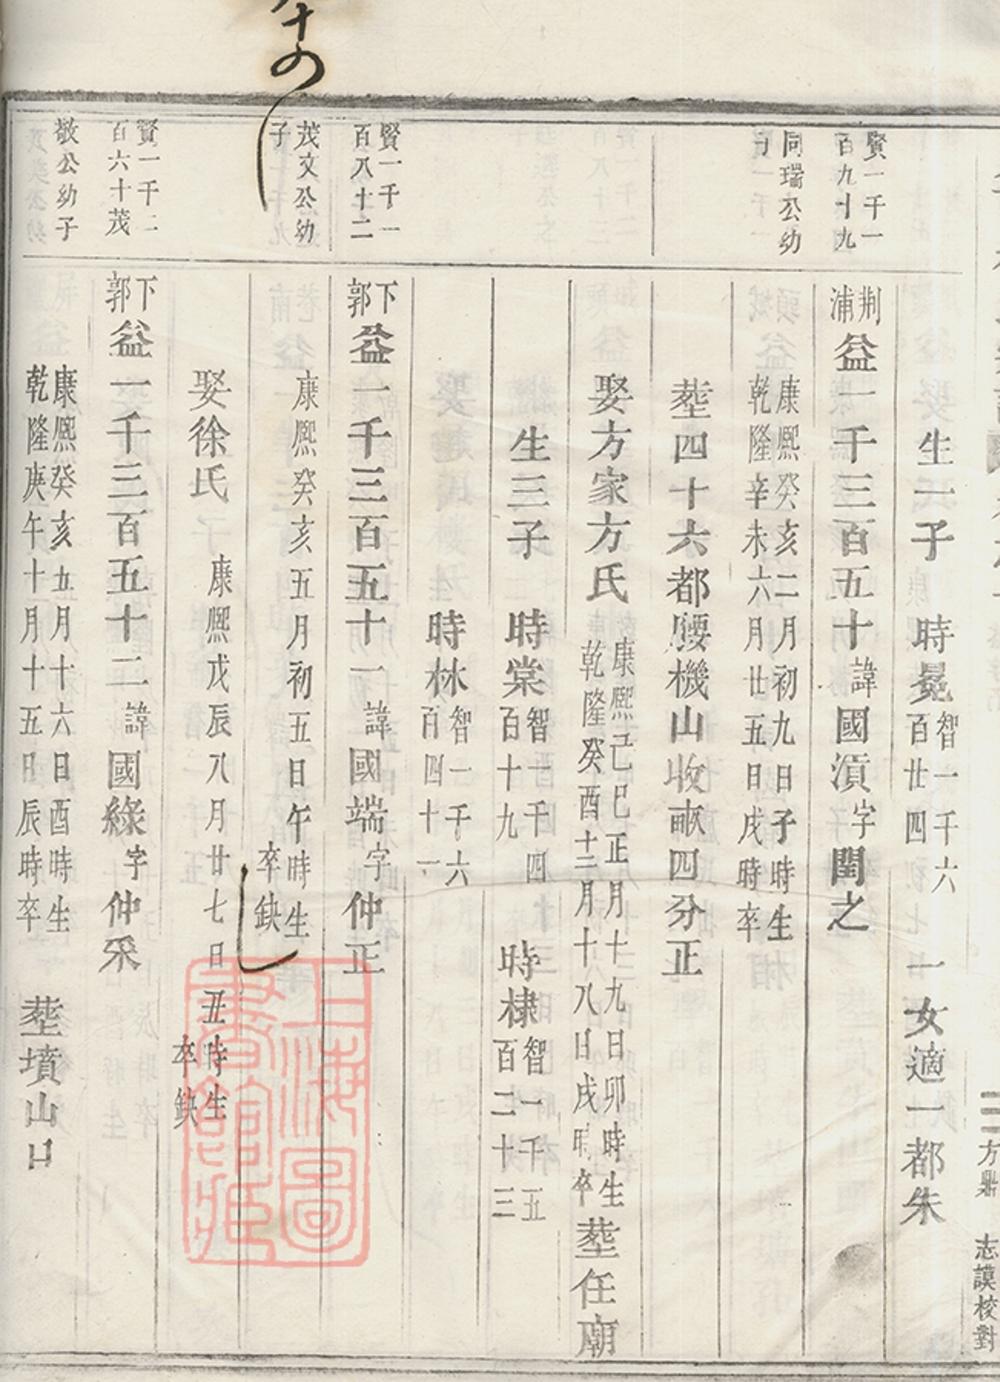 生一子 時冕智一千六百廿四 一女適一都朱
賢一千一百九十九
荆浦益一千三百五十諱國湏字閏之
同瑞公幼
康熙癸亥二月初九日子時生
乾隆辛未六月廿五日戌時卒
塟四十六都腰機山收畝四分正
娶方家方氏 康熙己巳正月十九日卯時生
乾隆癸酉十二月十八日戌時卒 塟任廟
生三子 時棠智一千四百十九 時棣智一千五百二十三
時林智一千六百四十一
賢一千一百八十二
下郭益一千三百五十一諱國端字仲正
茂文公幼子
康熙癸亥五月初五日午時生
卒缺
娶徐氏 康熙戊辰八月廿七日丑時生
卒缺
賢一千二百六十茂
下郭益一千三百五十二諱國綠字仲采
敬公幼子
康熙癸亥五月十六日酉時生
乾隆庚午十月十五日辰時卒 塟墳山
方鼎 志謨校對
上海圖書館藏